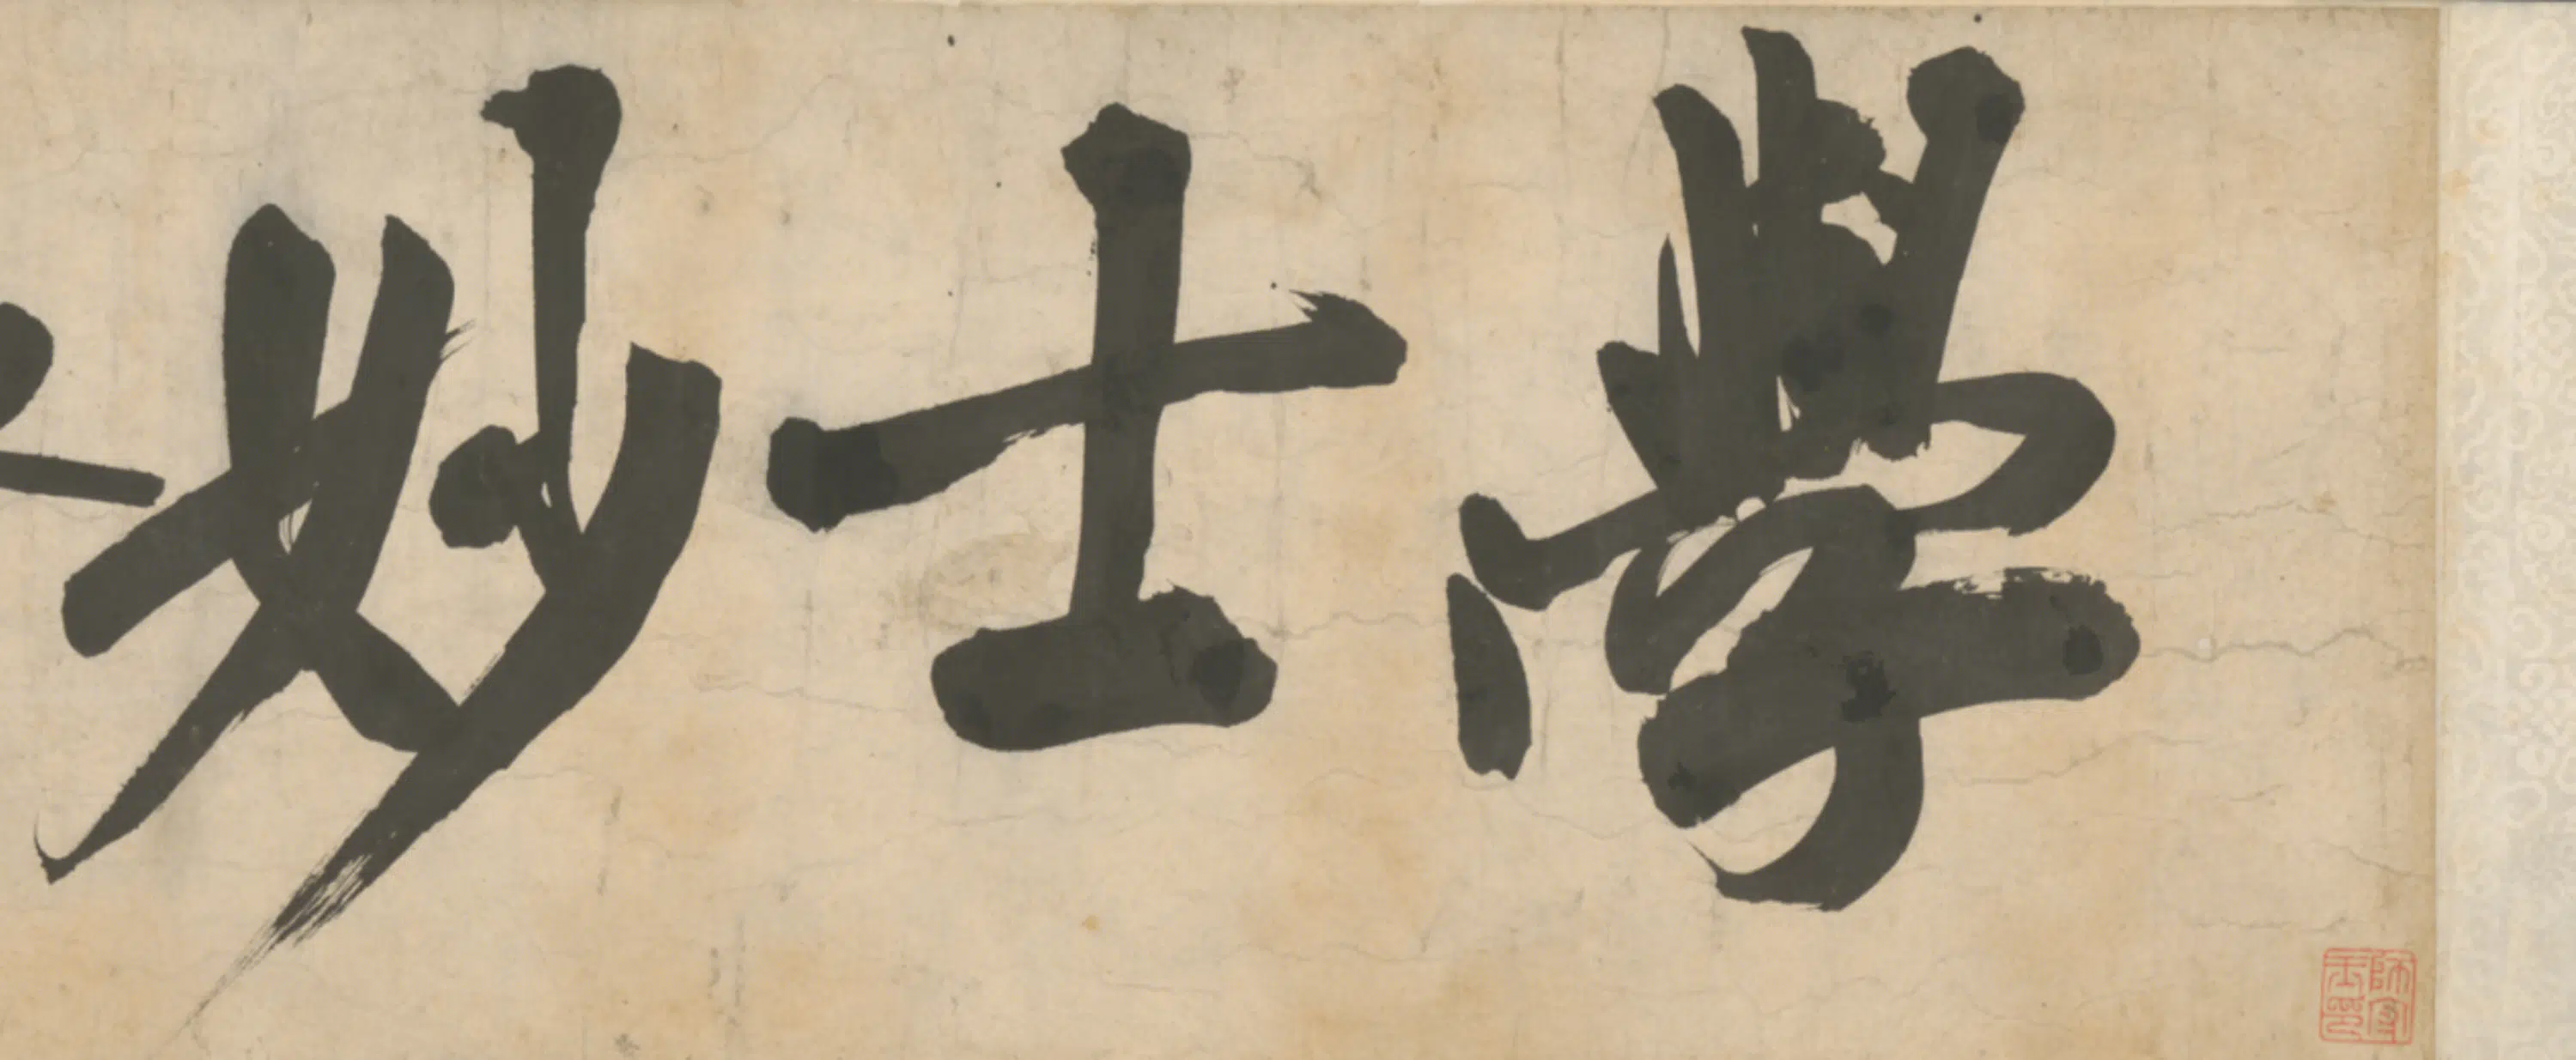 學士妙